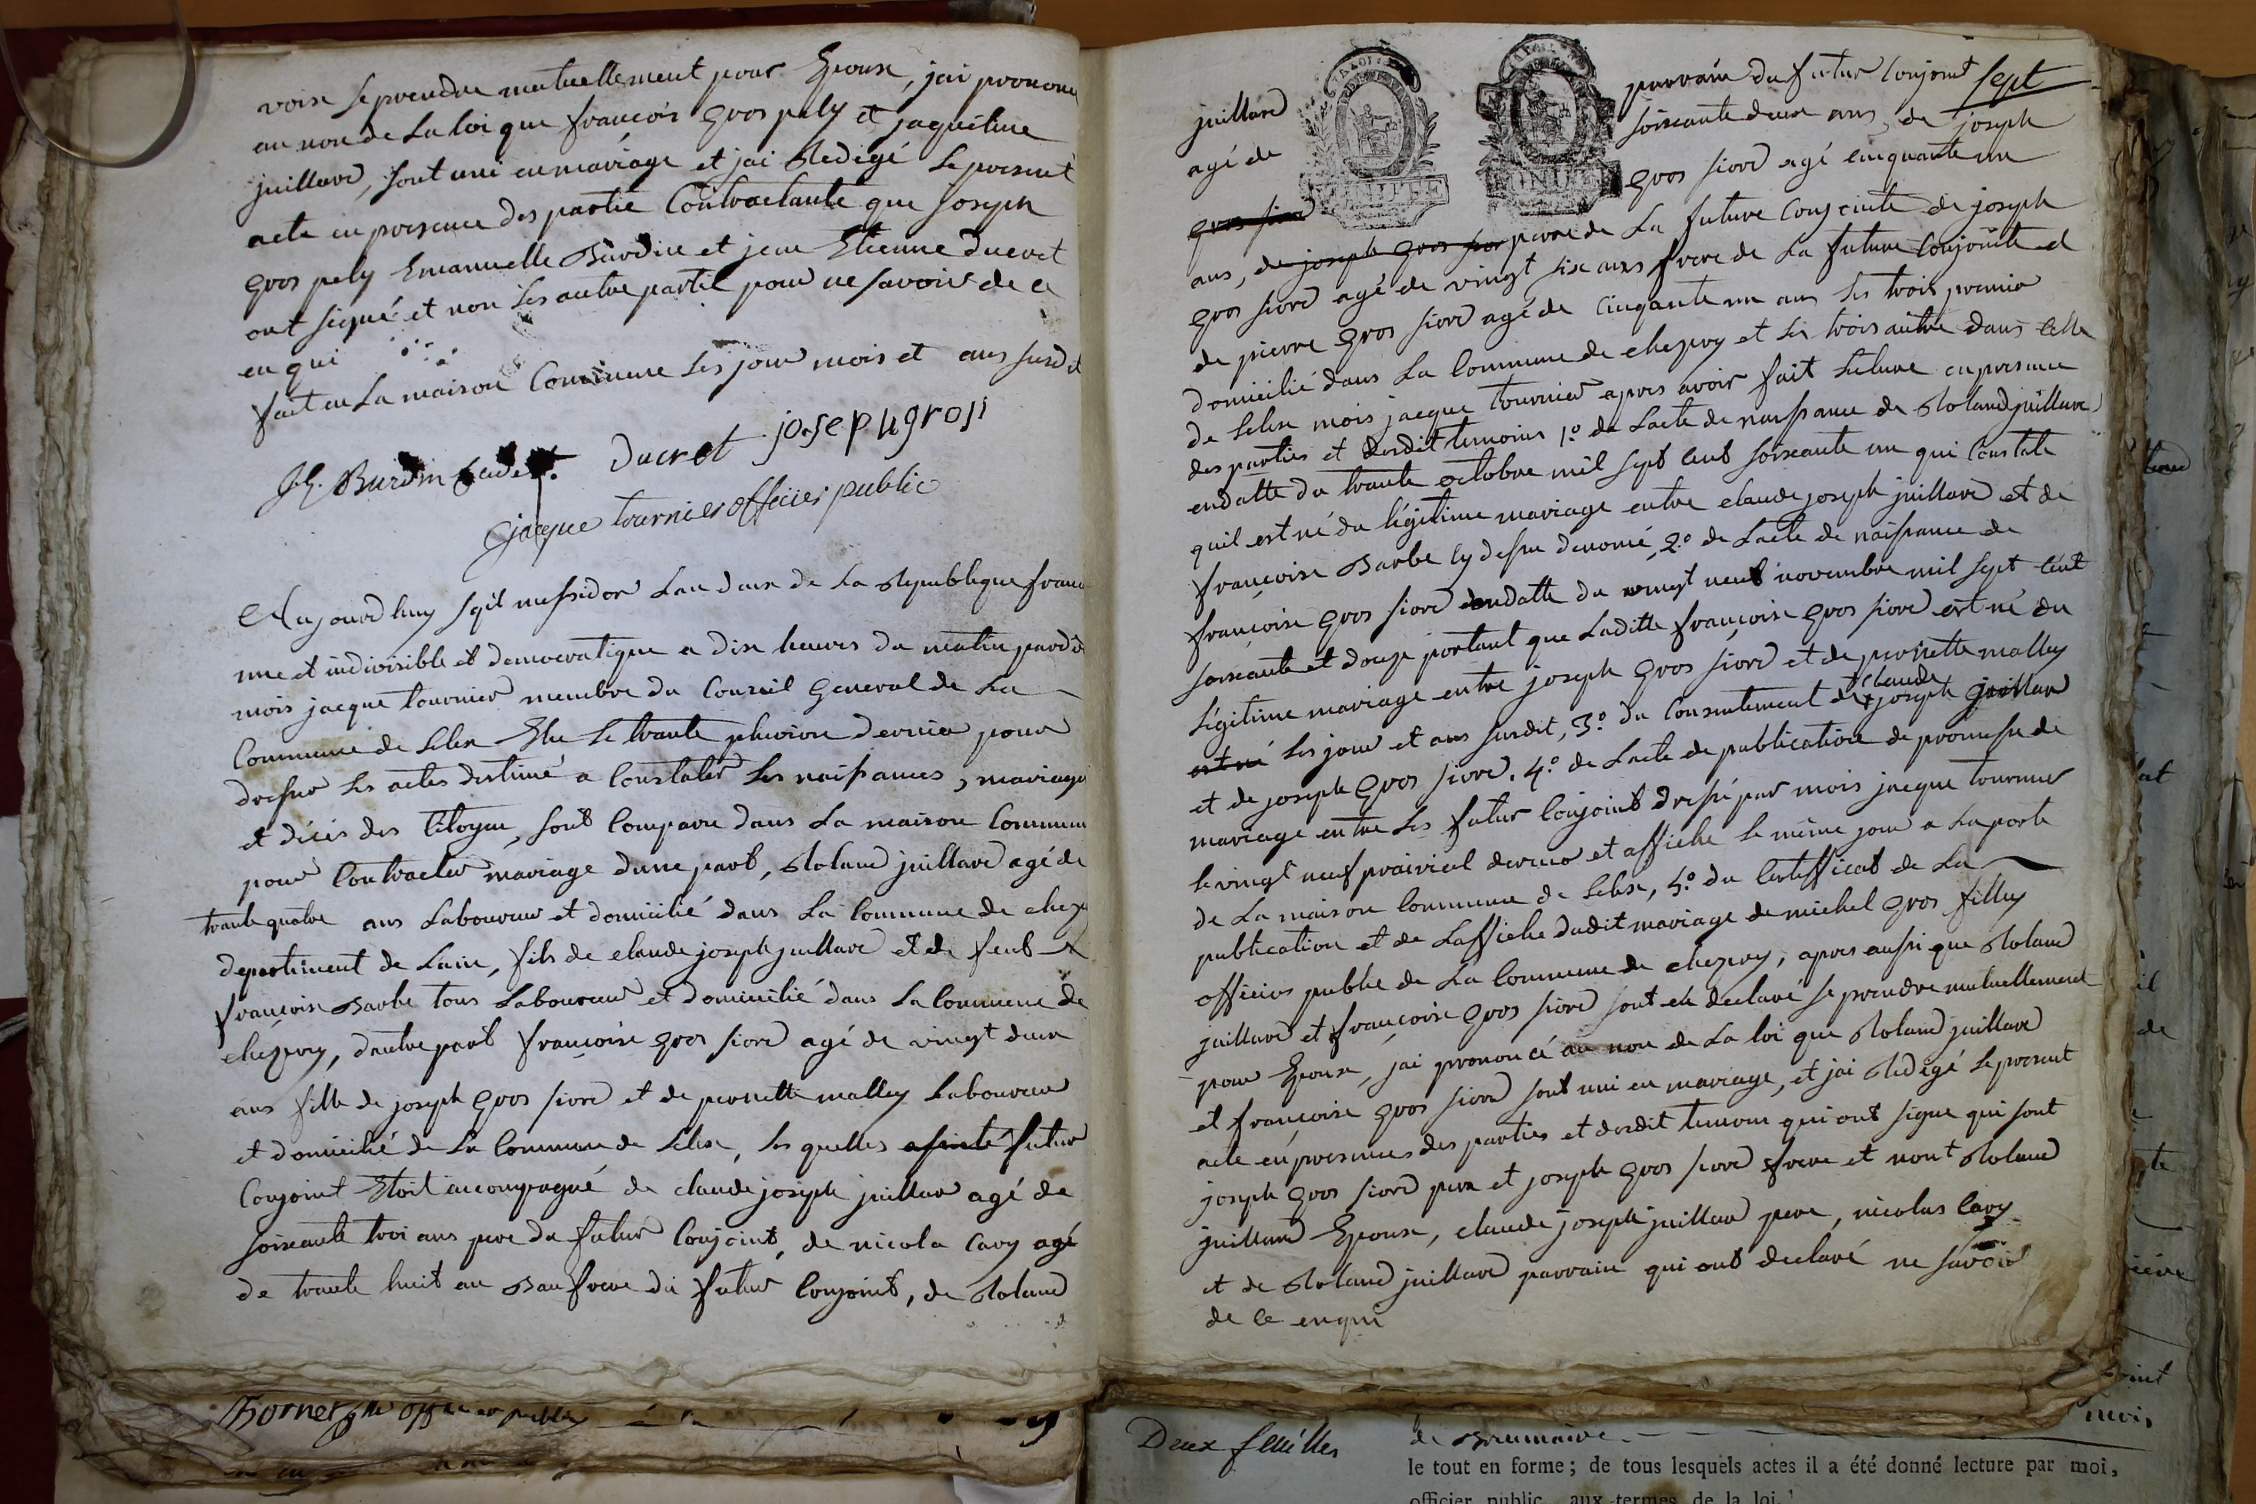 voix se prendre mutuellement pour Epoux, jai prononcé
au nom de La loi que françois gros pely et jaqueline
juillard, sont uni en mariage et jai Redigé Le present
acte en presence des partie Contractante que joseph
gros pely Emanuelle Burdin et jean Etienne ducret
ont signé et non les autre partie pour ne savoir de ce
en qui
fait en La maison Commune Les jour mois et ans susdit
Burdin ducret joseph gros
jacque tournier officier public
Aujourdhuy sept messidor Lan deux de La Republique franc
une et indivisible et democratique a dix heures du matin pard
mois jacque tournier membre du Conseil General de La
Commune de Lelex Elu Le trante pluviose dernier pour
dresser Les actes destiné a Constater Les naissances, mariages
et décés des Citoyen, sont Comparu dans La maison Commune
pour Contracter mariage dune part, Roland juillard agé de
trante quatre ans Laboureur et domicilié dans La Commune de chezery
departiment de Lain, fils de claude joseph juillard et de feut
françoise Barbe tous Laboureur et domicilié dans La Commune de
chézery, dautre part françoise gros siord agé de vingt deux
ans fille de joseph gros siord et de pernette malley Laboureur
et domicilié de La Commune de Lelex, Les quelles futur
Conjoint Etoit accompagné de claude joseph juillard agé de
soixante troi ans pere du futur Conjoint, de nicola Cavy agé
de trante huit an Beau frere du futur Conjoint, de Roland
juillard parrain du futur Conjoint sept
agé de soixante deux ans, de joseph
gros siord gros siord agé cinquante un
ans, de joseph gros sior pere de La future Conjointe de joseph
gros siord agé de vingt six ans frere de La future Conjointe et
de pierre gros siord agé de Cinqante un ans Les trois premier
domicilié dans La Commune de chezery et Les trois autre dans Celle
de Lelex mois jacque tournier apres avoir fait Lecture en presence
des parties et desdit temoins 1.º de Lacte de naissance de Roland juillard
endatte du trante octobre mil sept cent soixante un qui Constate
quil est né du légitime mariage entre claude joseph juillard et de
françoise Barbe cy dessu denomé, 2.º de Lacte de naissance de
françoise gros siord endatte du vingt neuf novembre mil sept cent
soixante et douze portant que Laditte françoise gros siord est né du
Légitime mariage entre joseph gros siord et de pernette malley
est né Les jour et ans susdit, 3.º du Consentement de claude joseph juillard
et de joseph gros siord. 4.º de Lacte de publication de promesse de
mariage entre Les futur Conjoint dressé par mois jacque tournier
le vingt neuf prairial dernier et affiché le même jour a La porte
de La maison Commune de Lelex, 5.º du Certifficat de La
publication et de Laffiche dudit mariage de michel gros filley
officier public de La Commune de chezery, apres aussi que Roland
juillard et françoise gros siord sont eté declaré se prendre mutuellement
pour Epoux, jai prononcé au nom de La loi que Roland juillard
et françoise gros siord sont uni en mariage, et jai Redigé Le present
acte en presences des parties et desdit temoin qui ont signe qui sont
joseph gros siord pere et joseph gros siord frere et nont Roland
juillard Epoux, claude joseph juillard pere, nicolas Cavy
et de Roland juillard parrain qui ont declaré ne savoir
de ce enqui
Deux feuilles
de Brumaire
mois
le tout en forme ; de tous lesquels actes il a été donné lecture par moi,
officier public, aux termes de la loi.